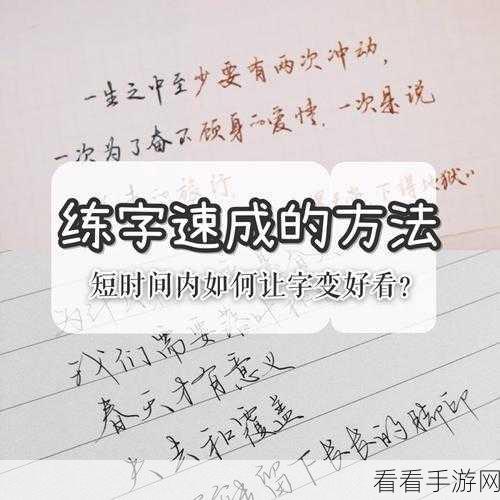 一生之中至少要有两次冲动,
一次为了奋不顾身的爱情,一次是说
下得地狱"
练字速成的方法
短时间内如何让字变好看?
我们需要落叶
春天才有意义
失去和覆盖
留下长长的脚印
看看手游网